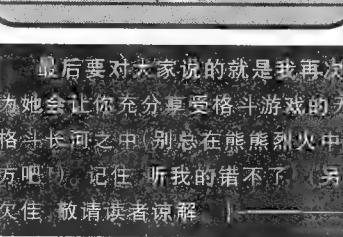 最后要对大家说的就是我再次
为她会让你充分享受格斗游戏的
格斗长河之中(别总在熊熊烈火中
方吧!) 记住 听我的错不了 (另
欠佳 敬请读者谅解